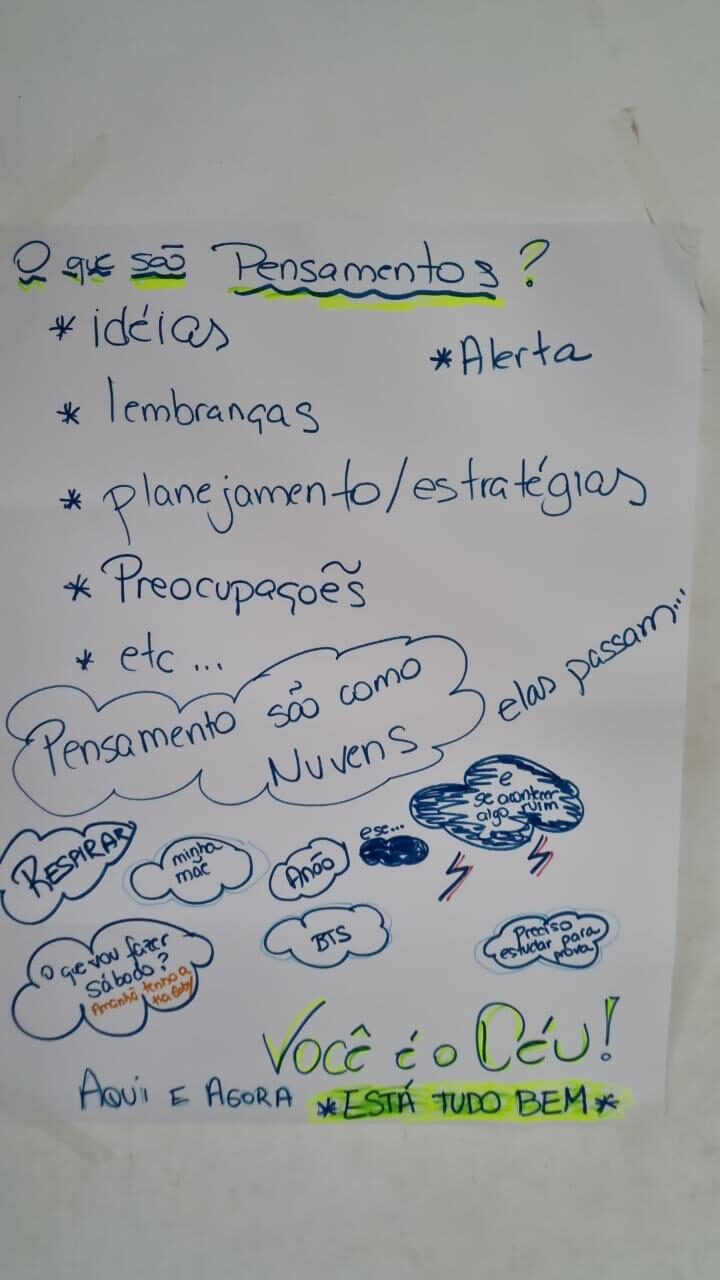 O que são Pensamentos?
* idéias
* Alerta
* lembranças
* planejamento/estratégias
* Preocupaçoẽs
* etc...
Pensamento são como
Nuvens
elas passam...
e
se acontecer
algo ruim
ese...
RESPIRAR
minha
mãe
Anão
O que vou fazer
Sábado?
Amanhã tenho a
tia Gaby
BTS
Preciso
estudar para
prova
Você é o Céu!
AQUI E AGORA *ESTÁ TUDO BEM*